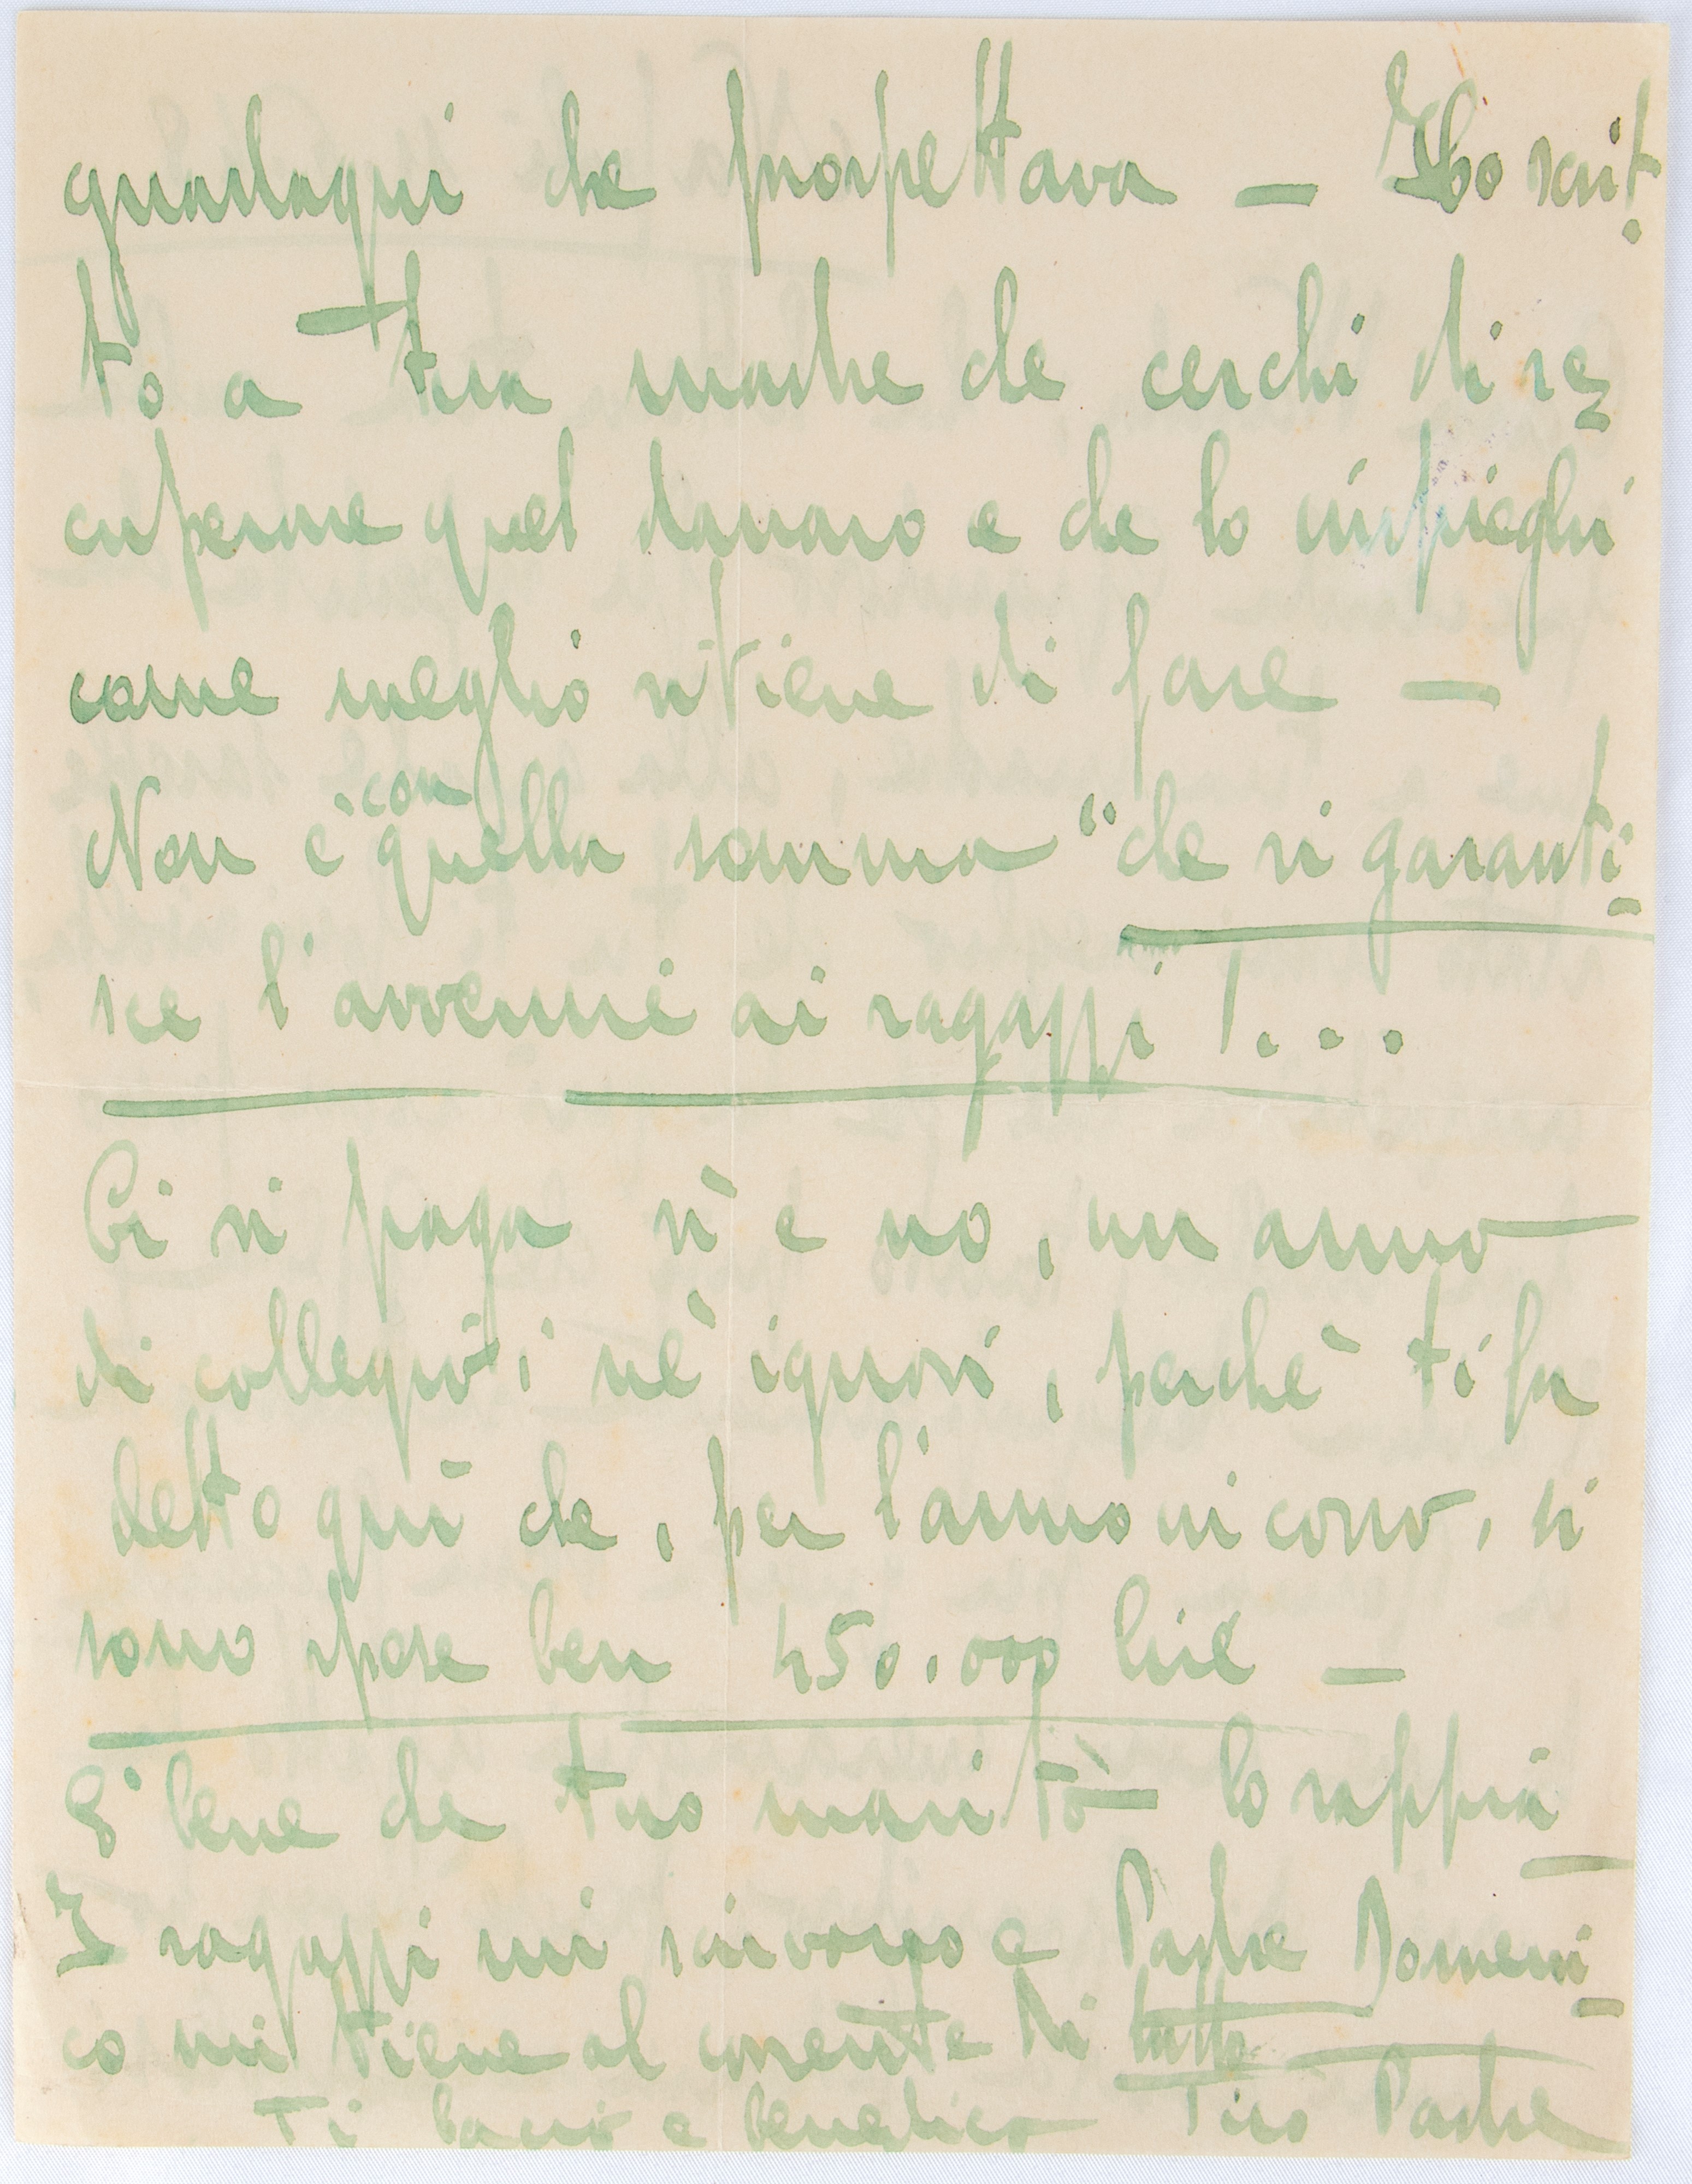 guadagni che prospettava — Ho scrit-
to a tua madre che cerchi di re-
cuperare quel danaro e che lo impieghi
come meglio ritiene di fare —
Non è con quella somma "che si garanti-
sce l'avvenire ai ragazzi!...
Ci si paga sì e no, un anno
di collegio; nè ignori, perchè ti fu
detto quì che, per l'anno in corso, si
sono spese ben 450.000 lire —
E' bene che tuo marito lo sappia
I ragazzi mi scrivono e Padre Domeni-
co mi tiene al corrente di tutto
Ti bacio e benedico Tuo Padre